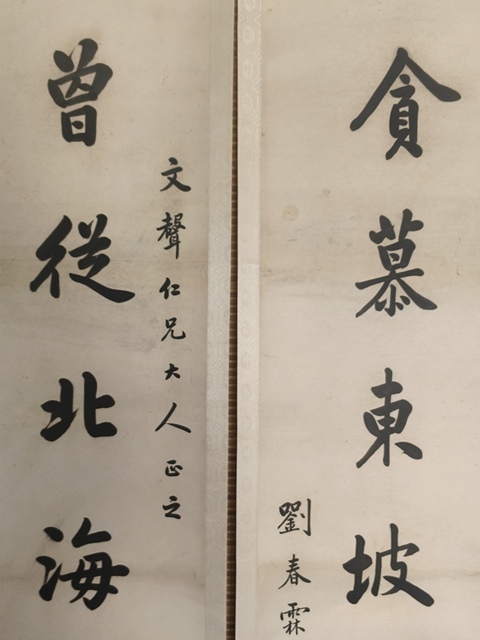 貪慕東坡
劉春霖
文聲仁兄大人正之
曾從北海